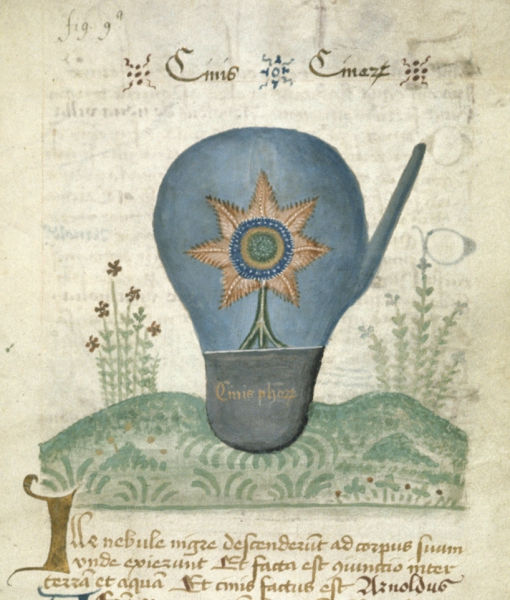 fig. 9ª
Cinis Cinerꝝ
Cinis phorꝝ
Ille nebule nigre descenderūt ad corpus suum
vnde exierunt Et facta est iter
terrā et aquā Et cinis factus est Arnoldus